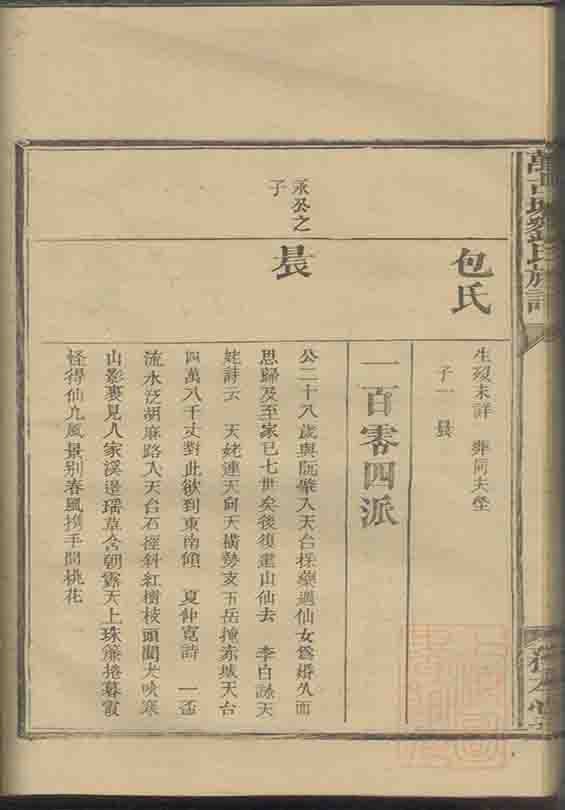 劉氏族
包氏
生歿未詳 葬同夫塋
子一晨
一百零四派
承公之
子
晨
公二十八歲與阮肇入天台採藥遇仙女爲婚久而
思歸及至家已七世矣後復還山仙去 李白詠天
姥詩云 天姥連天向天橫勢支五岳掩赤城天台
四萬八千丈對此欲到東南傾 夏仲寬詩 一盃
流水泛胡麻路入天台石徑斜紅樹枝頭聞犬吠寒
山影裏見人家溪邊瑤草含朝露天上珠簾捲暮霞
怪得仙凡風景別春風携手問桃花